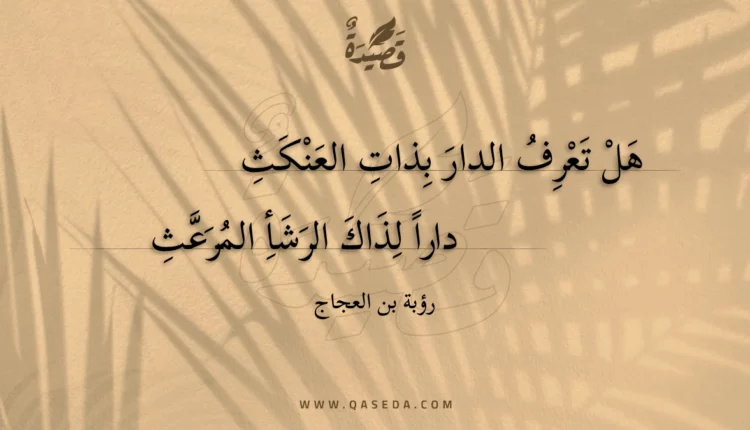 قَصِيْدَةٌ
هَلْ تَعْرِفُ الدارَ بِذاتِ العَنْكَثِ
داراً لِذَاكَ الرَشَأِ المُرَعَّثِ
رؤبة بن العجاج
WWW.QASEDA.COM